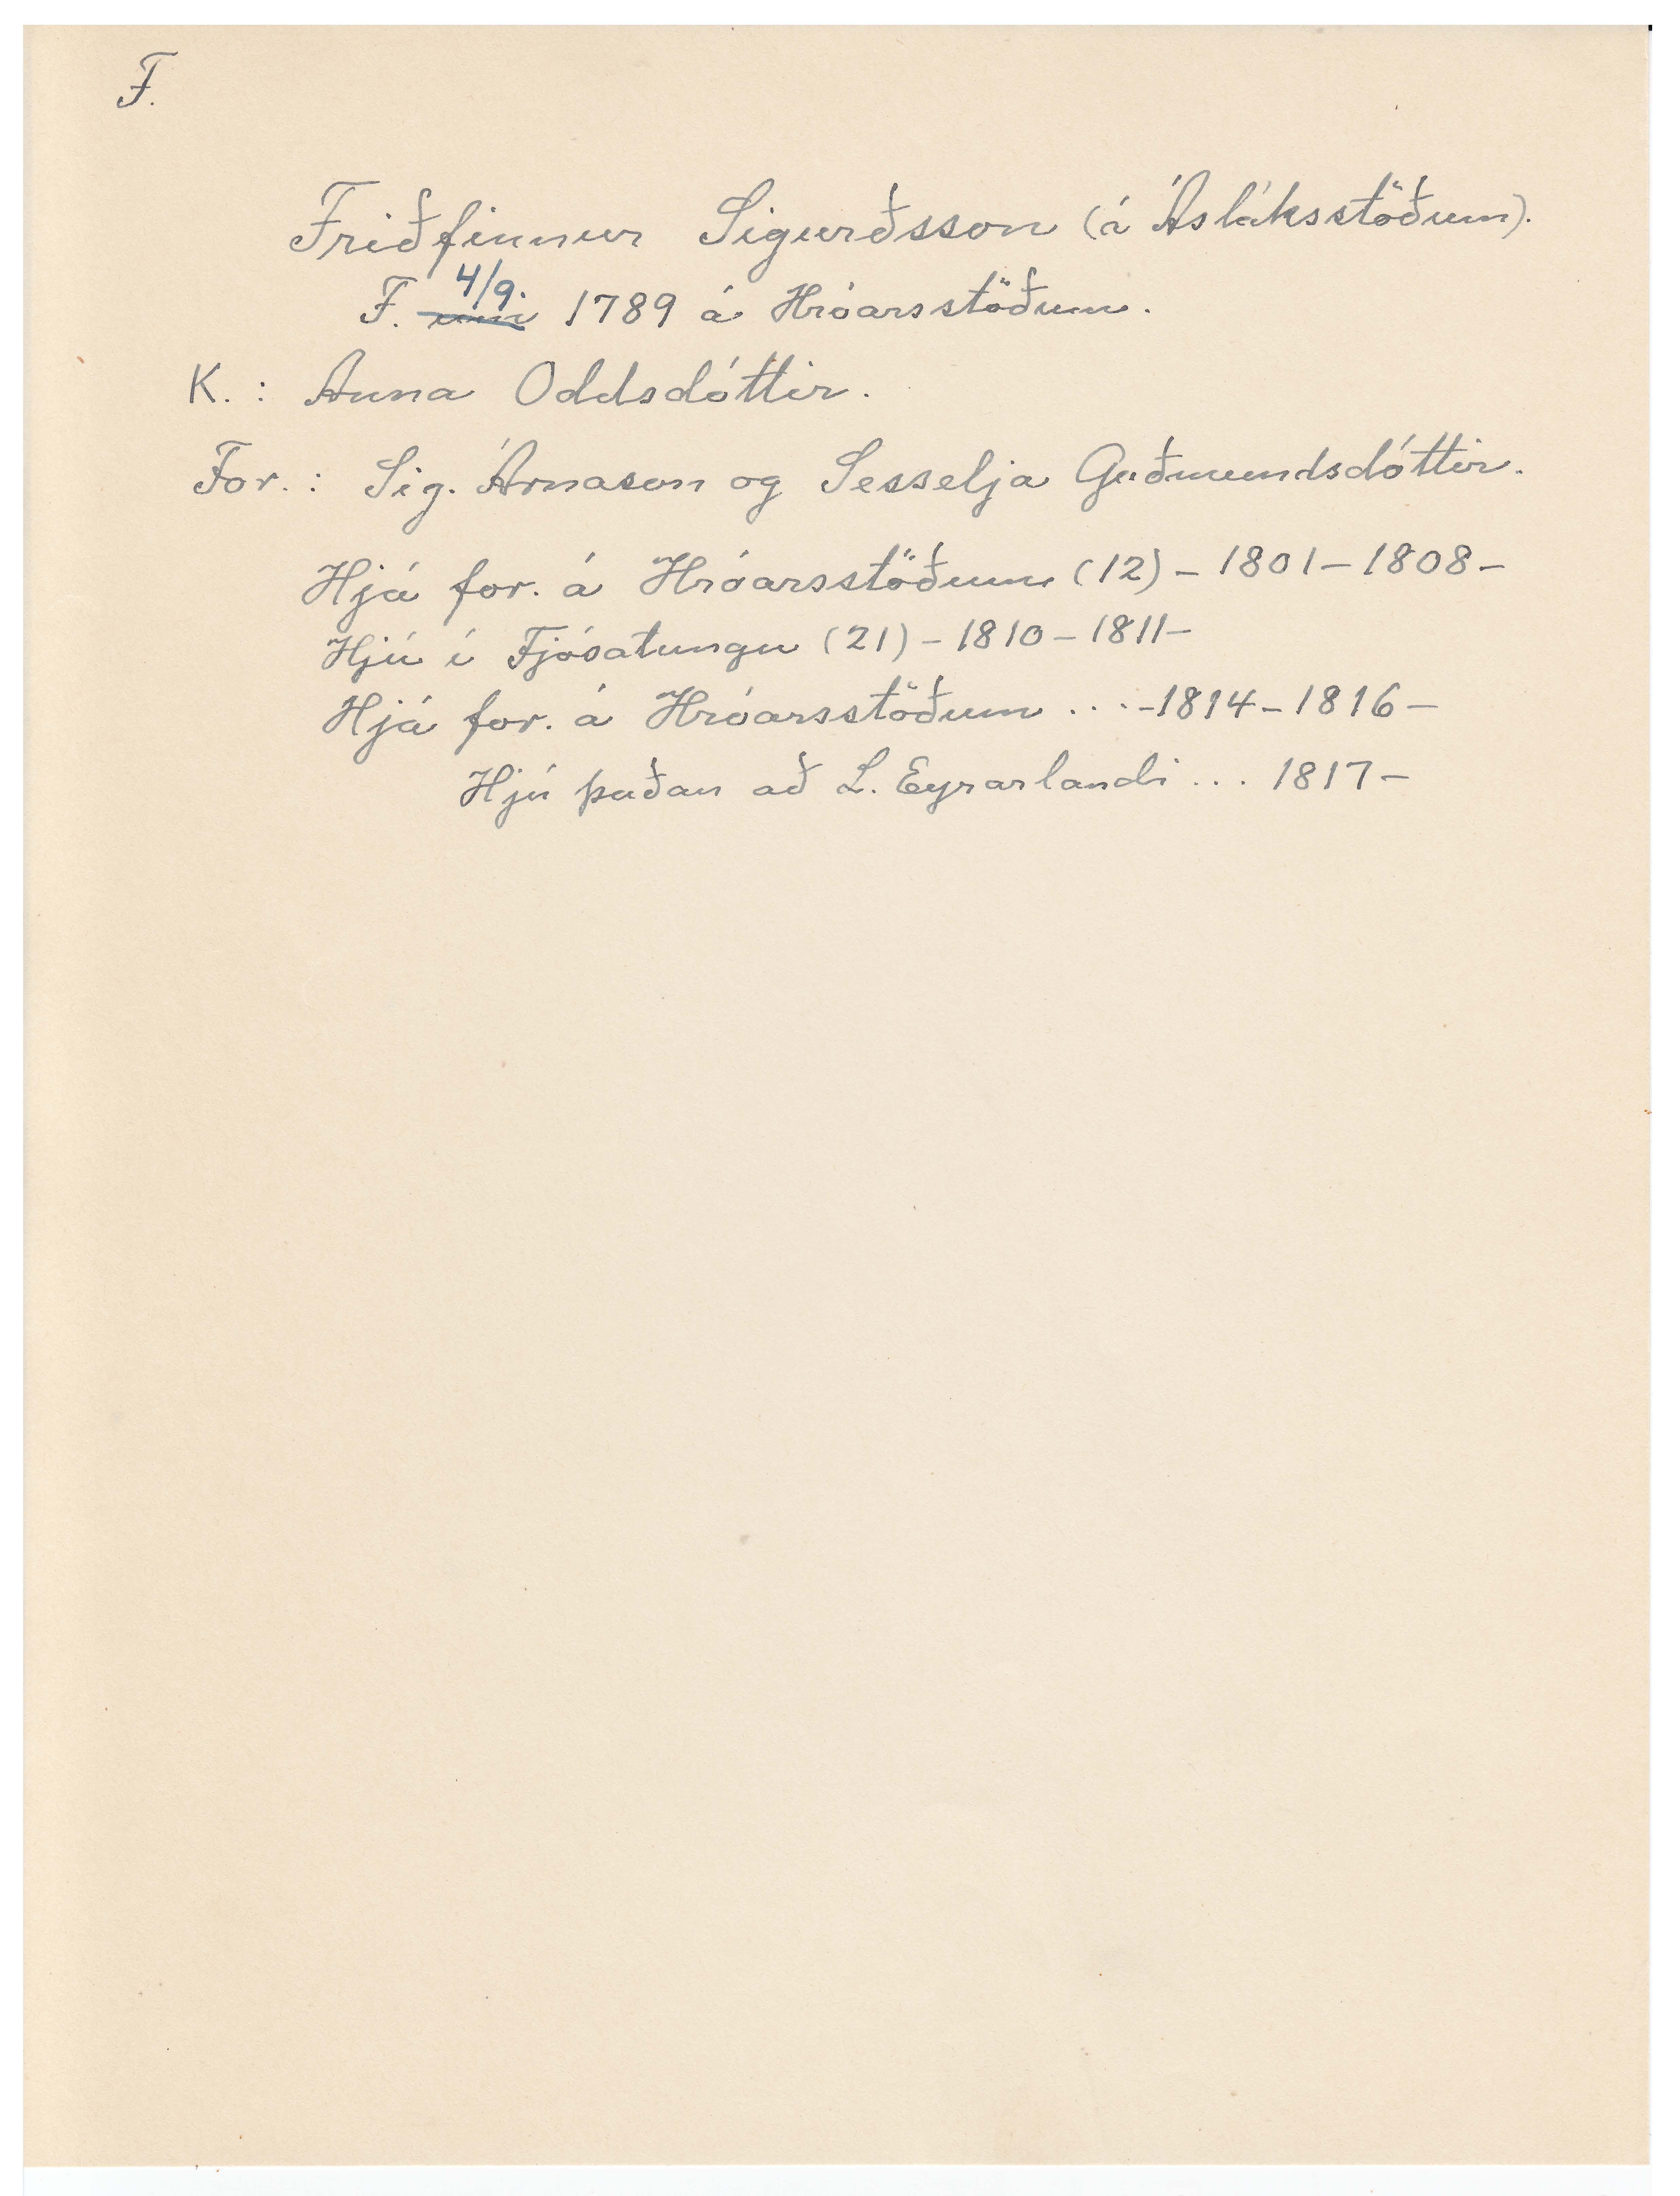 F.
Friðfinnur Sigurðsson (á Ásláksstöðum).
F. um 4/9. 1789 á Hróarsstöðum.
K. : Anna Oddsdóttir.
For. : Sig. Árnason og Sesselja Guðmundsdóttir.
Hjá for. á Hróarsstöðum (12) - 1801 - 1808 -
Hjú í Fjósatungu (21) - 1810 - 1811 -
Hjá for. á Hróarsstöðum ... - 1814 - 1816 -
Hjú þaðan að L. Eyrarlandi ... 1817 -